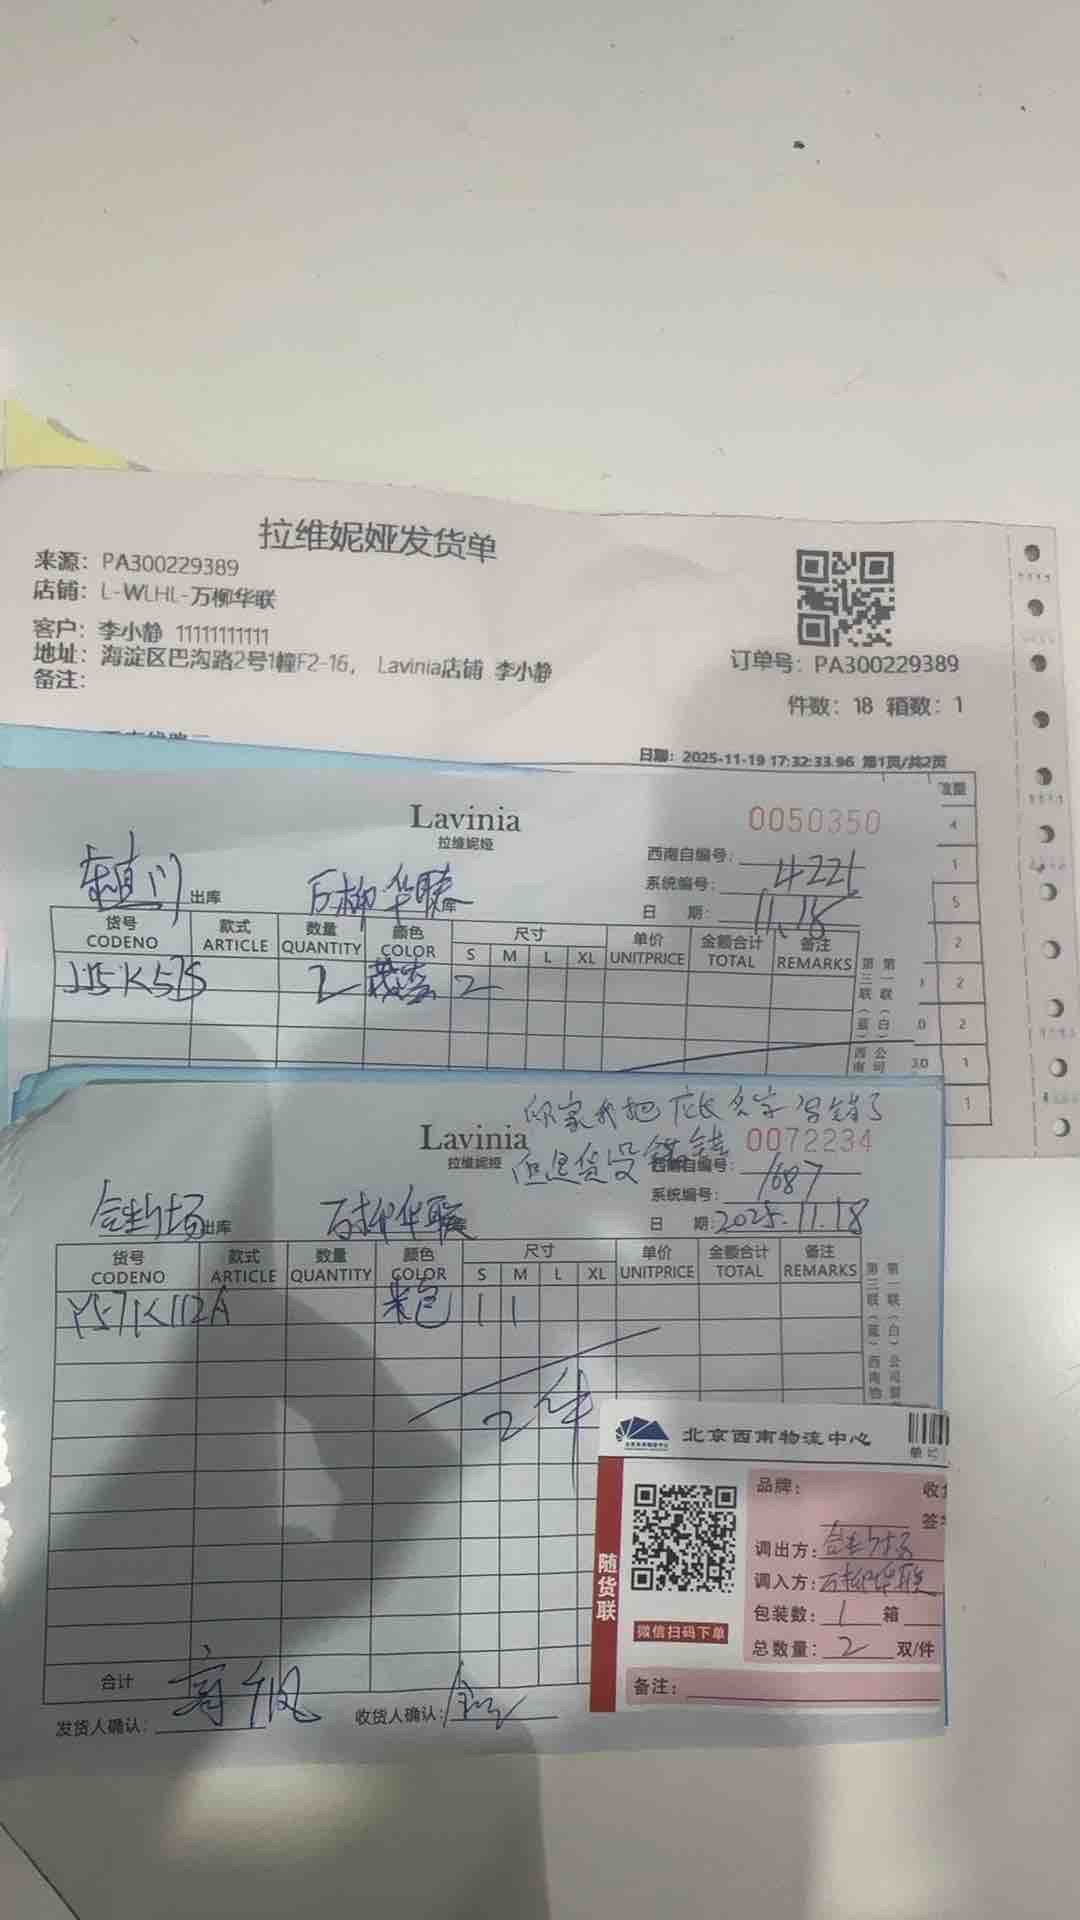 拉维妮娅发货单
来源：PA300229389
店铺：L-WLHL-万柳华联
客户：李小静 11111111111
地址：海淀区巴沟路2号1幢F2-16， Lavinia店铺 李小静
备注：
订单号：PA300229389
件数：18 箱数：1
日期：2025-11-19 17:32:33.96 第1页/共2页
4
1
5
2
2
2
1
1
Lavinia
拉维妮娅
0050350
西南自编号：4221
系统编号：
日 期：11.18
东直门 出库 万柳华联 库
货号 款式 数量 颜色 尺寸 单价 金额合计 备注
CODENO ARTICLE QUANTITY COLOR S M L XL UNITPRICE TOTAL REMARKS
J15K575 2 2
第一联（白）公司
第三联（蓝）西南
Lavinia
拉维妮娅
店长名字写错了
但是货没
0072234
西南自编号：1687
系统编号：
日 期：2025.11.18
出库 万柳华联 库
货号 款式 数量 颜色 尺寸 单价 金额合计 备注
CODENO ARTICLE QUANTITY COLOR S M L XL UNITPRICE TOTAL REMARKS
Y57K112A 米色 1 1
第一联（白）公司
第三联（蓝）西南物
2件
合计
发货人确认：
收货人确认：
北京西南物流中心
随货联
微信扫码下单
品牌：
调出方：
调入方：万柳华联
包装数：1 箱
总数量：2 双/件
备注：